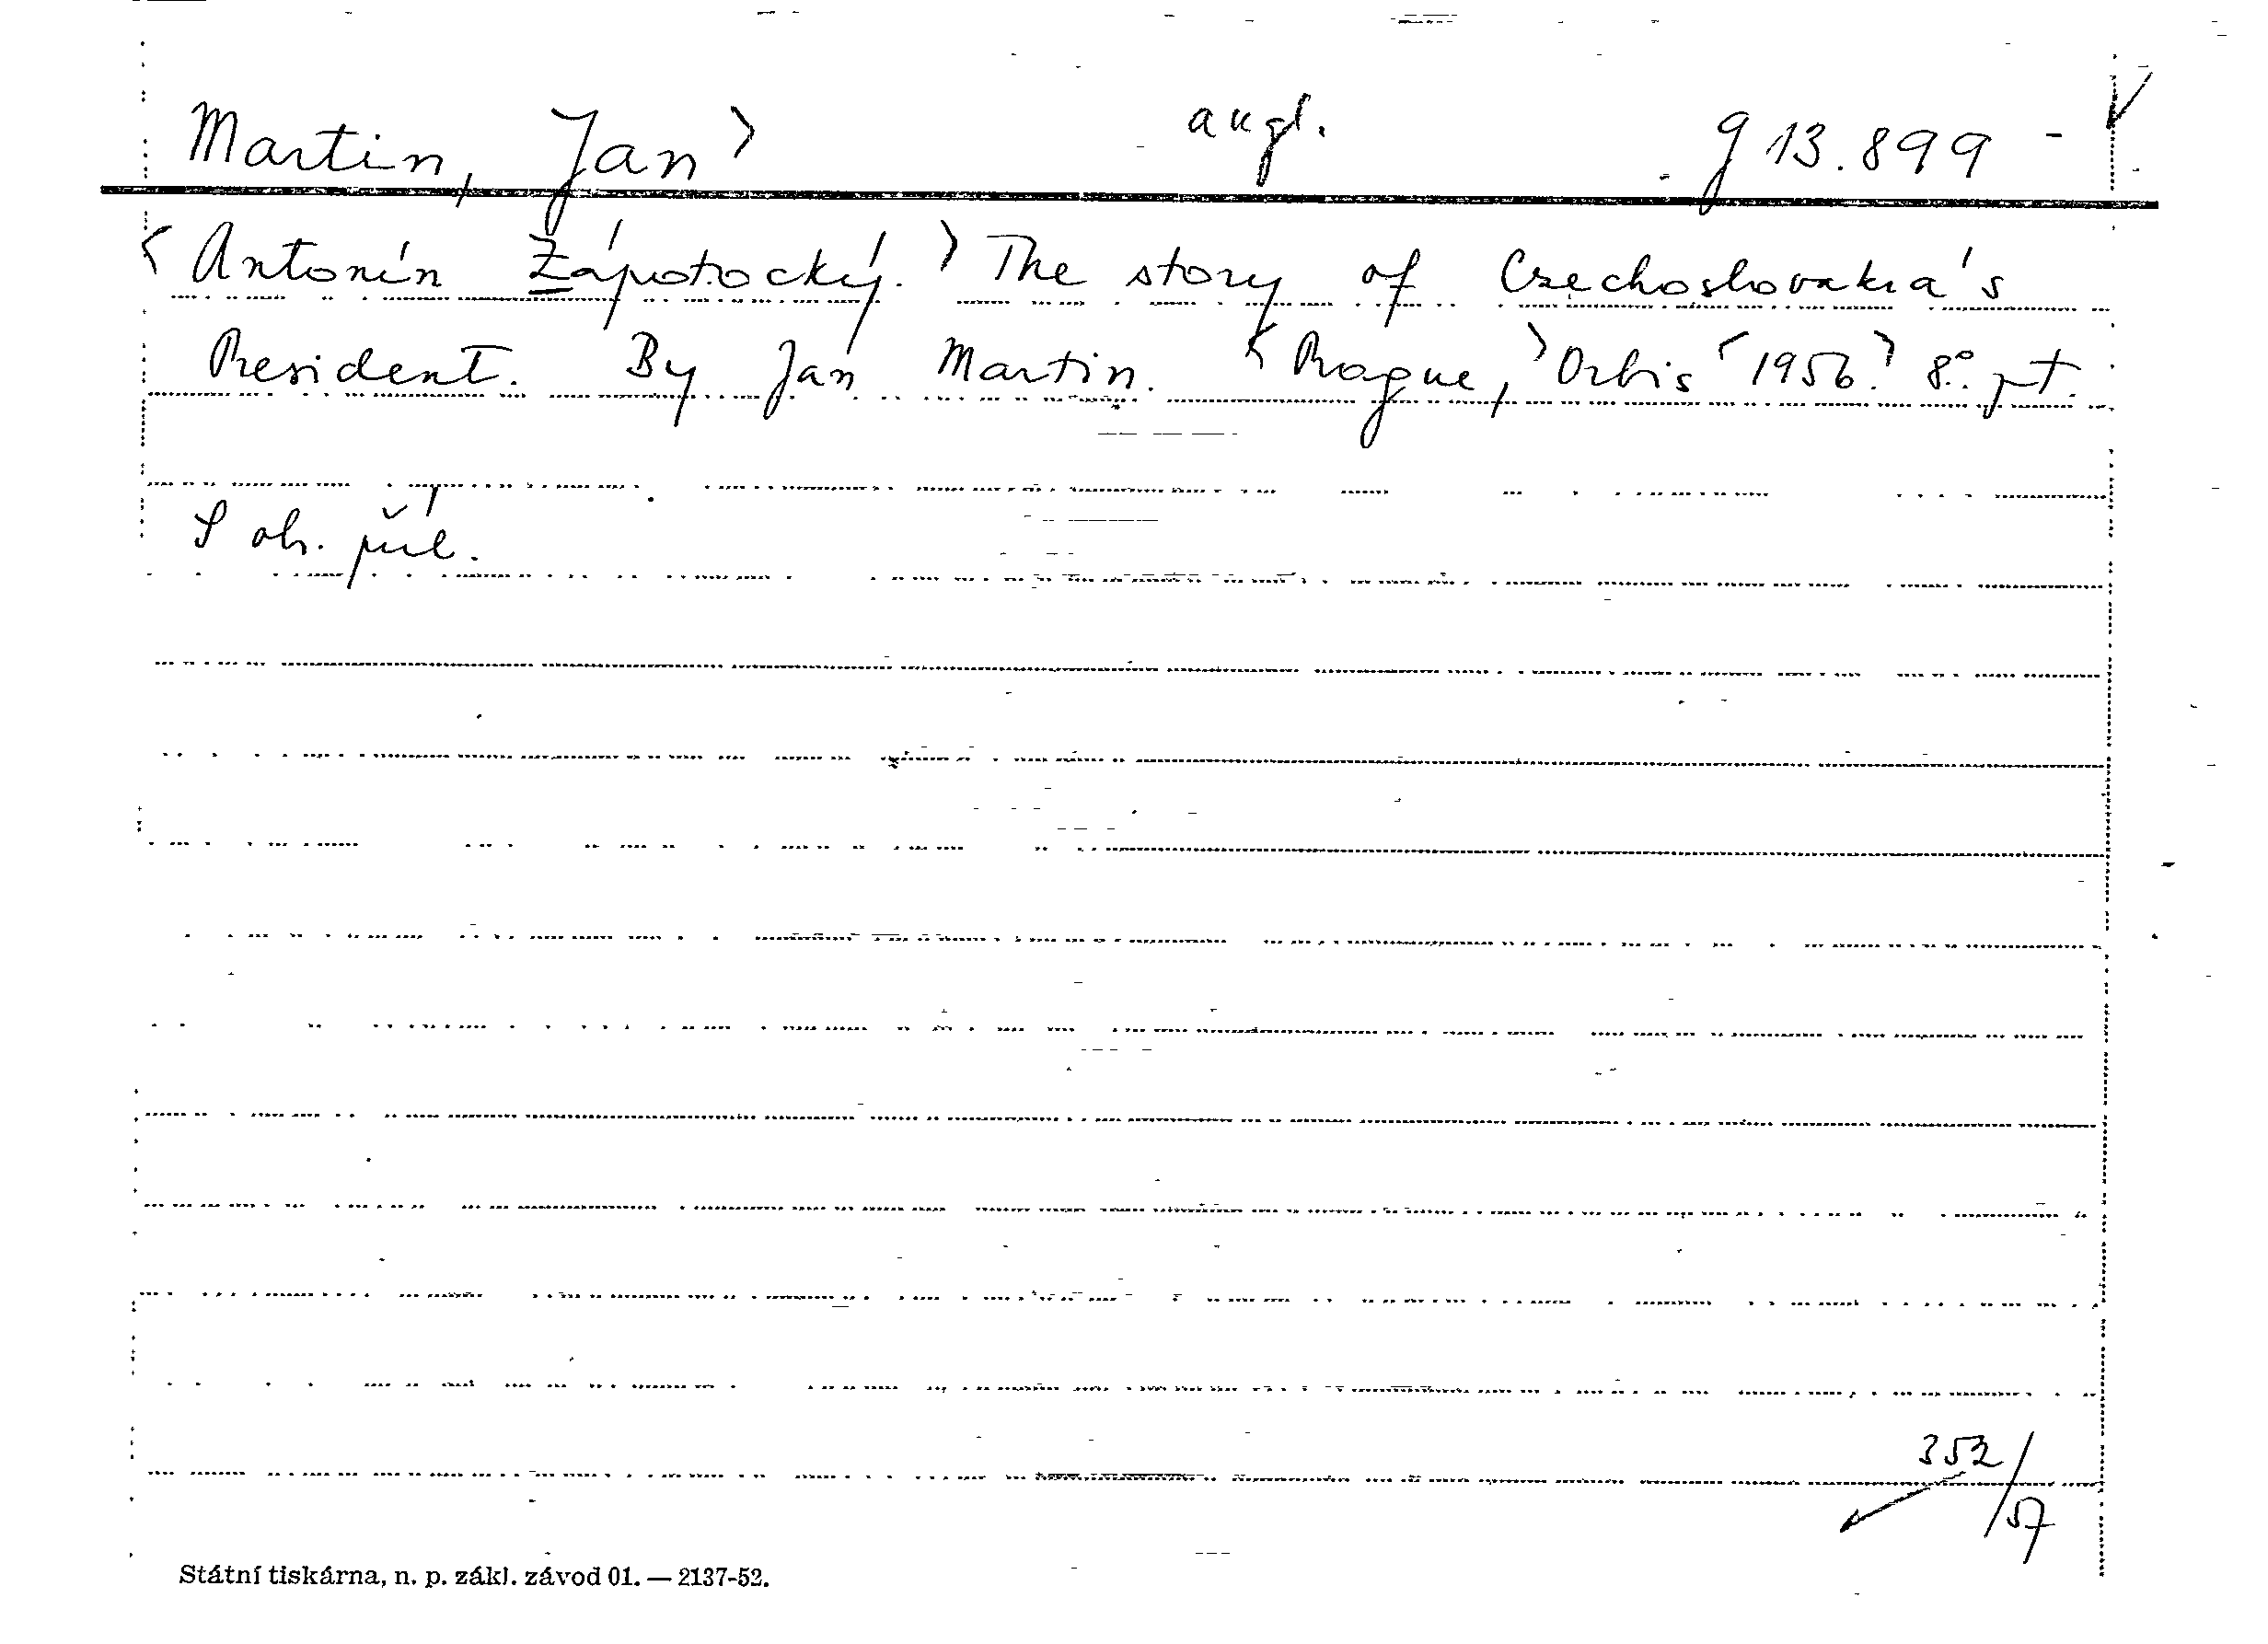 Martin, Jan > angl. g 13.899 -
< Antonín Zápotocký. > The story of Czechoslovakia's
President. By Jan Martin. < Prague, > Orbis < 1956. > 8°. pt.
S obr. příl.
352/57
Státní tiskárna, n. p. zákl. závod 01. — 2137-52.